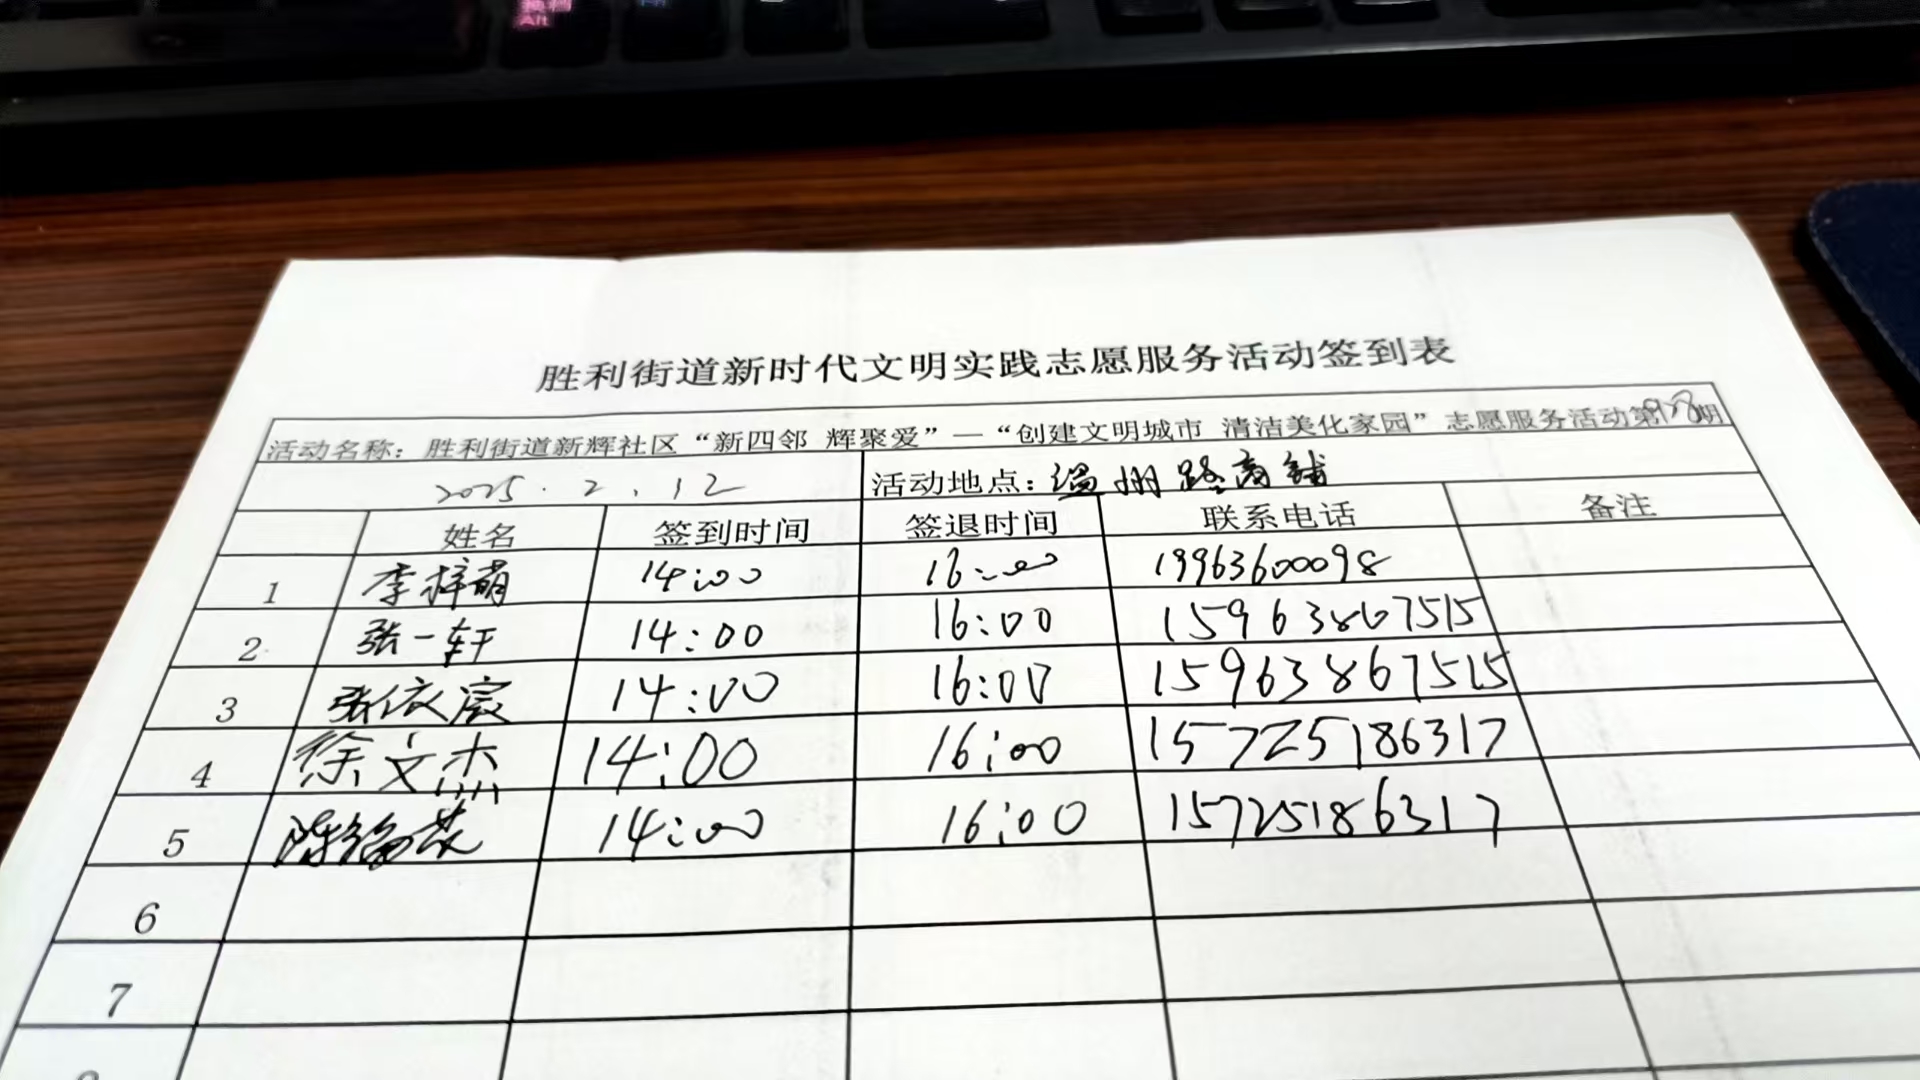 Alt
胜利街道新时代文明实践志愿服务活动签到表
活动名称：胜利街道新辉社区“新四邻 辉聚爱”—“创建文明城市 清洁美化家园”志愿服务活动第 期
2025.2.12 活动地点：温州路商铺
姓名 签到时间 签退时间 联系电话 备注
1 李梓萌 14:00 16:00 19963600098
2 张一轩 14:00 16:00 15963867515
3 张依宸 14:00 16:00 15963867515
4 徐文杰 14:00 16:00 15725186317
5 陈 14:00 16:00 15725186317
6
7